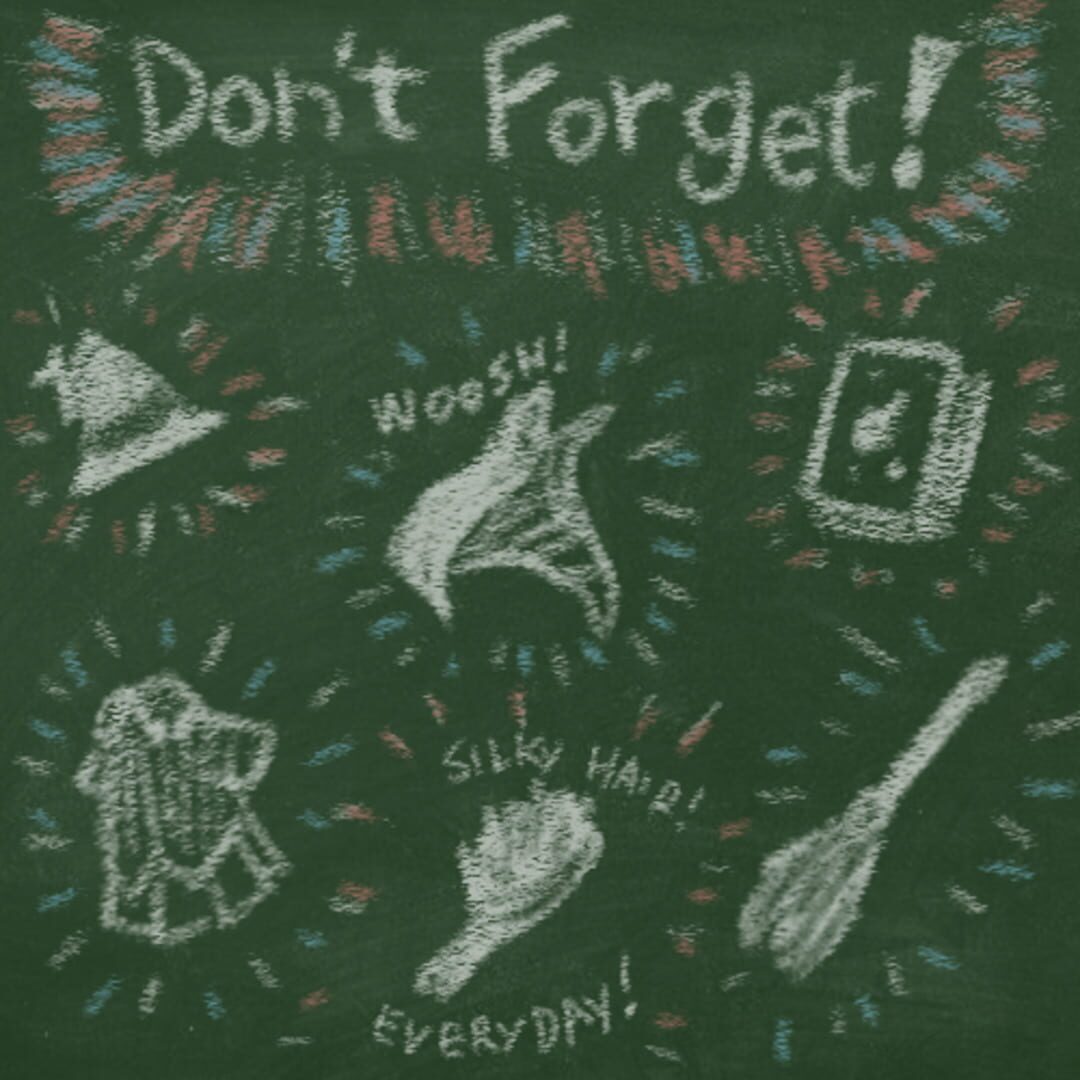 Don't Forget!
WOOSH!
SILKY HAIR!
EVERYDAY!